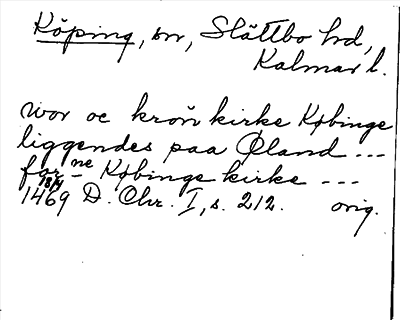 Köping, sn, Slättbo hd,
Kalmar l.
wor oc kron̄ kirke Købinge
liggendes paa Øland ...
for ne - Købinge kirke ---
18/4
1469 D. Chr. I, s. 212. orig.